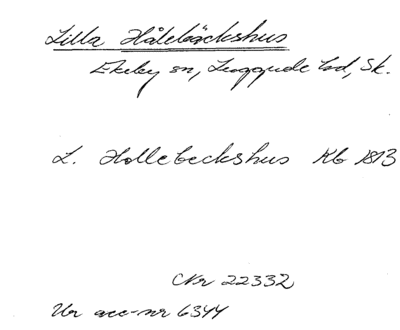 Lilla Hålebäckshus
Ekeby sn, Luggude hd, Sk.
L. Hollebeckshus Kb 1813
CNr 22332
Ur acc-nr 6344